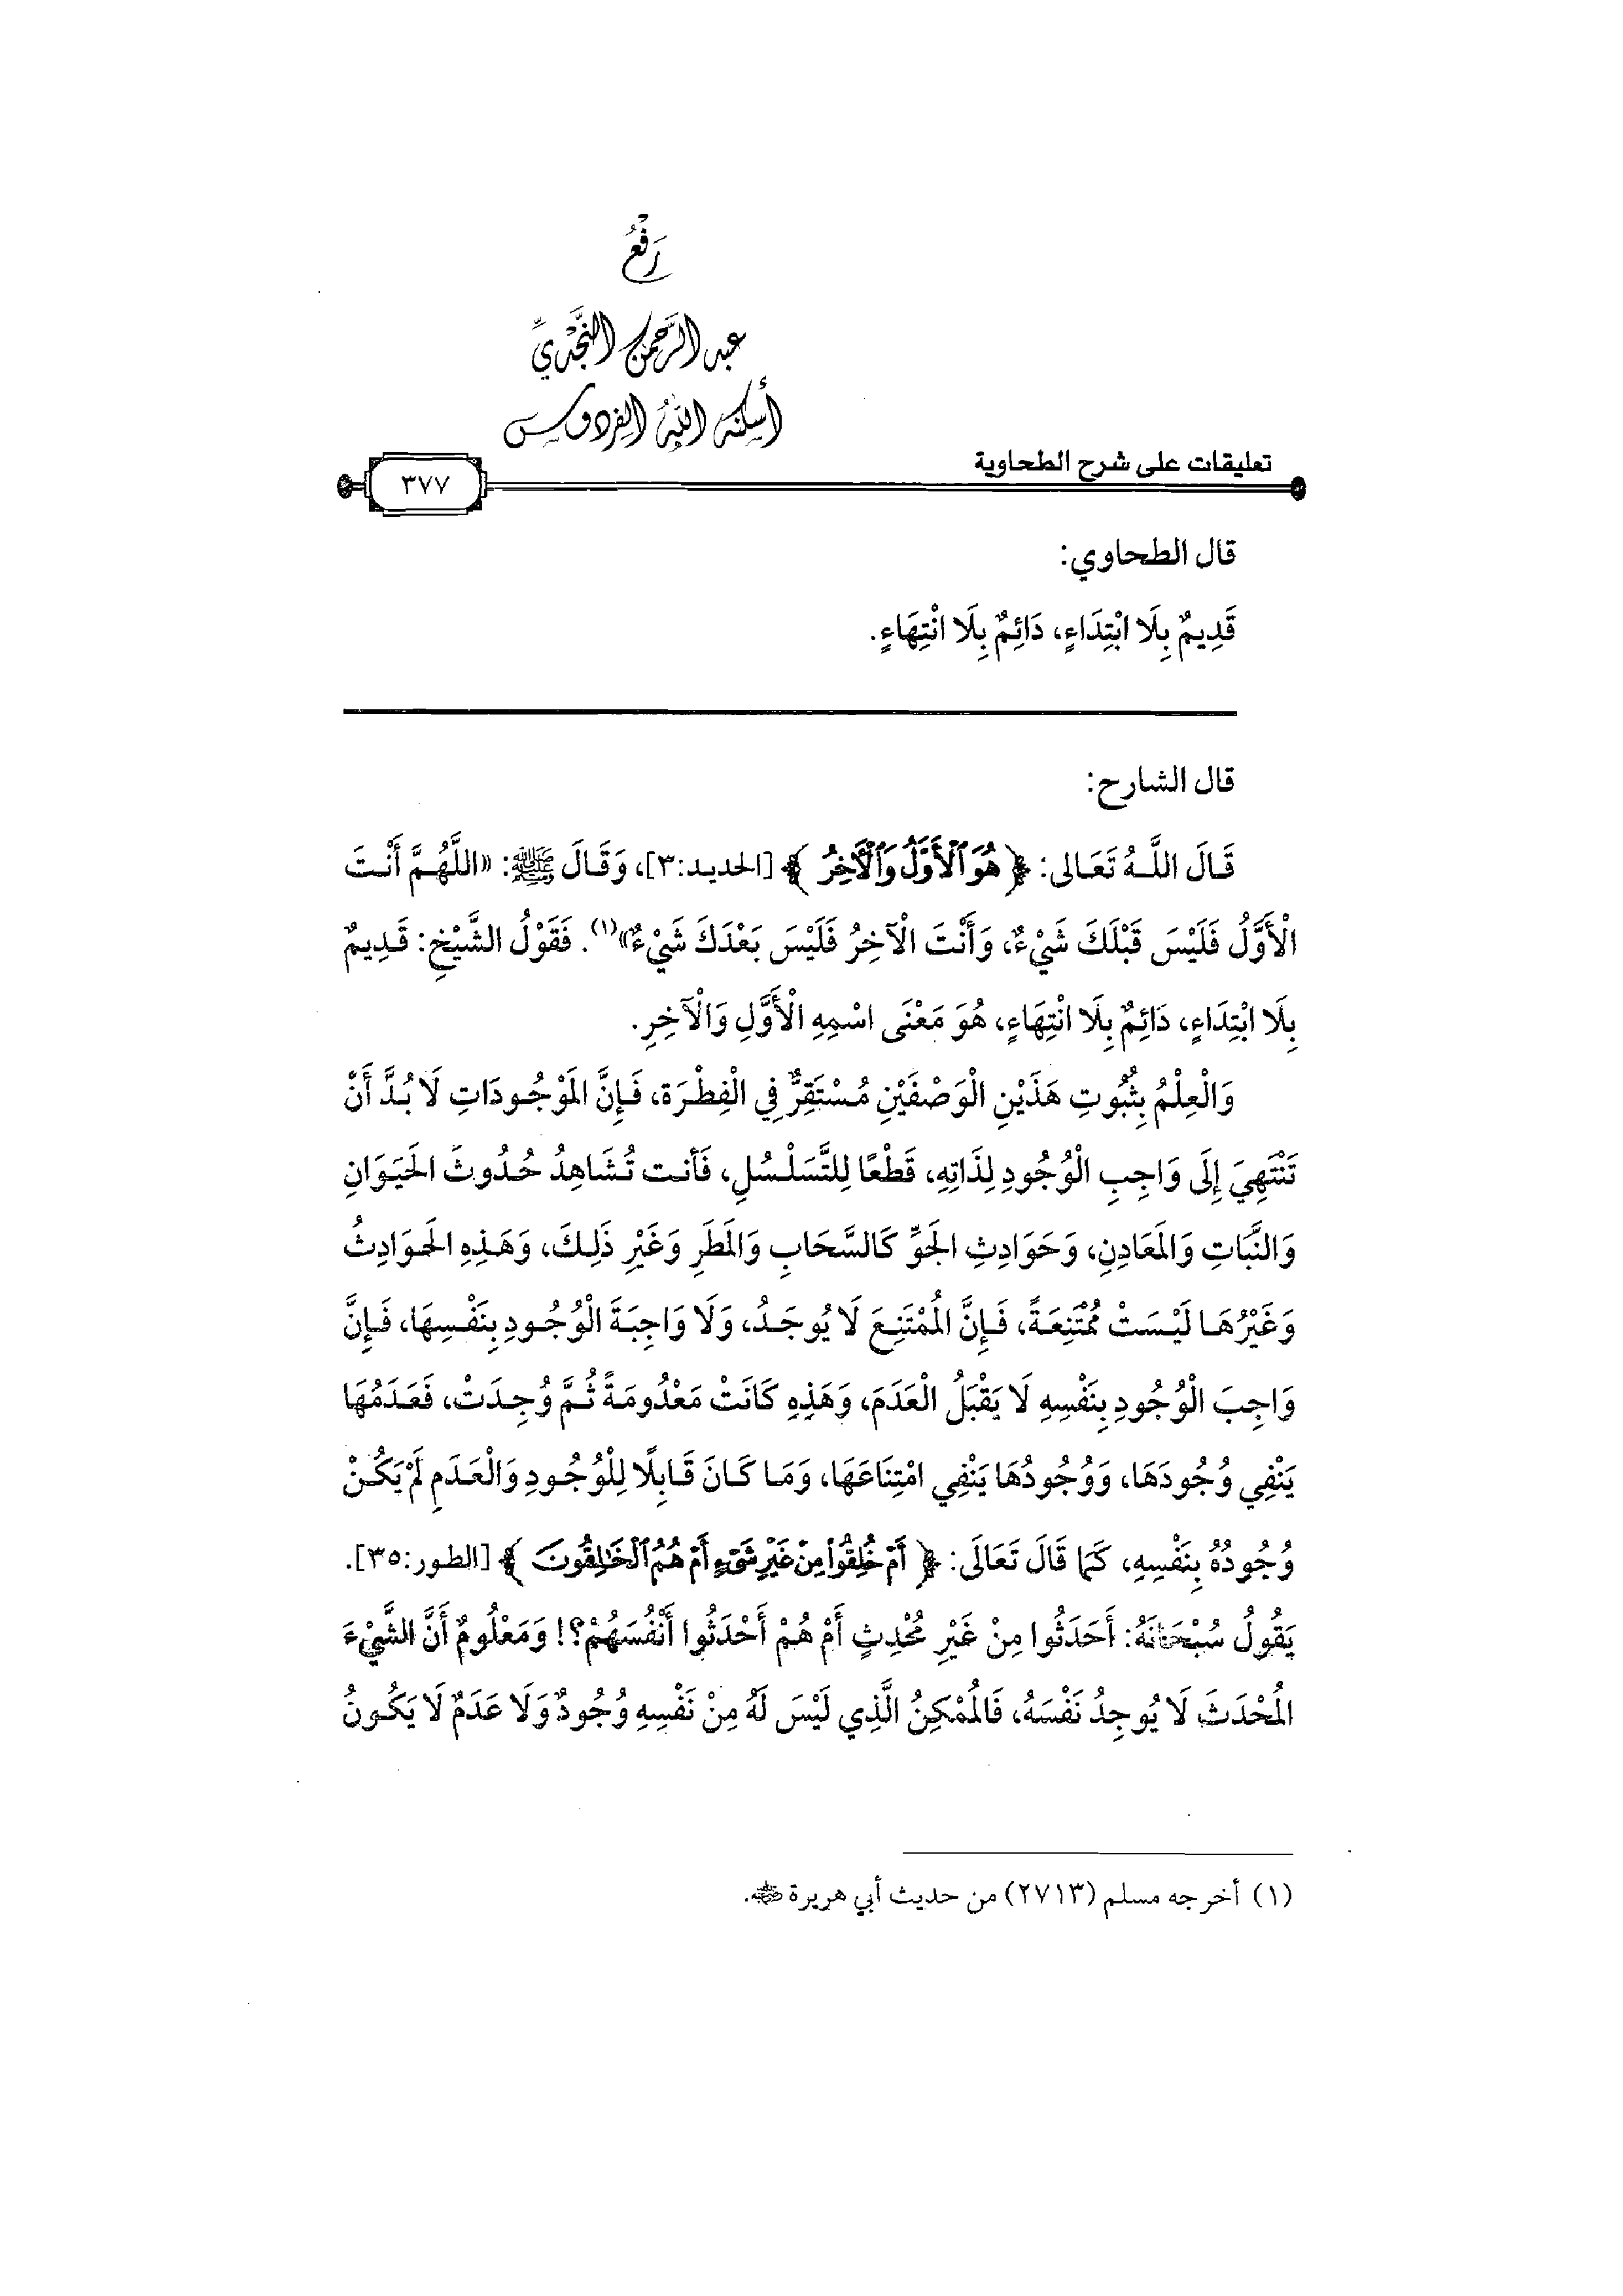 رَفْعُ
عبد الرَّحمن النَّجْديِّ
أسكنه الله الفردوس
تعليقات على شرح الطحاوية
٣٧٧
قال الطحاوي:
قَدِيمٌ بِلَا ابْتِدَاءٍ، دَائِمٌ بِلَا انْتِهَاءٍ.
قال الشارح:
قَالَ اللَّهُ تَعَالى: ﴿هُوَ ٱلْأَوَّلُ وَٱلْآخِرُ﴾ [الحديد:٣]، وَقَالَ ﷺ: «اللَّهُمَّ أَنْتَ
الْأَوَّلُ فَلَيْسَ قَبْلَكَ شَيْءٌ، وَأَنْتَ الْآخِرُ فَلَيْسَ بَعْدَكَ شَيْءٌ»(١). فَقَوْلُ الشَّيْخِ: قَدِيمٌ
بِلَا ابْتِدَاءٍ، دَائِمٌ بِلَا انْتِهَاءٍ، هُوَ مَعْنَى اسْمِهِ الْأَوَّلِ وَالْآخِرِ.
وَالْعِلْمُ بِثُبُوتِ هَذَيْنِ الْوَصْفَيْنِ مُسْتَقِرٌّ فِي الْفِطْرَة، فَإِنَّ المَوْجُودَاتِ لَا بُدَّ أَنْ
تَنْتَهِيَ إِلَى وَاجِبِ الْوُجُودِ لِذَاتِهِ، قَطْعًا لِلتَّسَلْسُلِ، فَأنت تُشَاهِدُ حُدُوثَ الحَيَوَانِ
وَالنَّبَاتِ وَالمَعَادِنِ، وَحَوَادِثِ الجَوِّ كَالسَّحَابِ وَالمَطَرِ وَغَيْرِ ذَلِكَ، وَهَذِهِ الحَوَادِثُ
وَغَيْرُهَا لَيْسَتْ مُمْتَنِعَةً، فَإِنَّ المُمْتَنِعَ لَا يُوجَدُ، وَلَا وَاجِبَةَ الْوُجُودِ بِنَفْسِهَا، فَإِنَّ
وَاجِبَ الْوُجُودِ بِنَفْسِهِ لَا يَقْبَلُ الْعَدَمَ، وَهَذِهِ كَانَتْ مَعْدُومَةً ثُمَّ وُجِدَتْ، فَعَدَمُهَا
يَنْفِي وُجُودَهَا، وَوُجُودُهَا يَنْفِي امْتِنَاعَهَا، وَمَا كَانَ قَابِلًا لِلْوُجُودِ وَالْعَدَمِ لَمْ يَكُنْ
وُجُودُهُ بِنَفْسِهِ، كَمَا قَالَ تَعَالَى: ﴿أَمْ خُلِقُوا۟ مِنْ غَيْرِ شَىْءٍ أَمْ هُمُ ٱلْخَٰلِقُونَ﴾ [الطور:٣٥].
يَقُولُ سُبْحَانَهُ: أَحَدَثُوا مِنْ غَيْرِ مُحْدِثٍ أَمْ هُمْ أَحْدَثُوا أَنْفُسَهُمْ؟! وَمَعْلُومٌ أَنَّ الشَّيْءَ
المُحْدَثَ لَا يُوجِدُ نَفْسَهُ، فَالمُمْكِنُ الَّذِي لَيْسَ لَهُ مِنْ نَفْسِهِ وُجُودٌ وَلَا عَدَمٌ لَا يَكُونُ
(١) أخرجه مسلم (٢٧١٣) من حديث أبي هريرة رضي الله عنه.